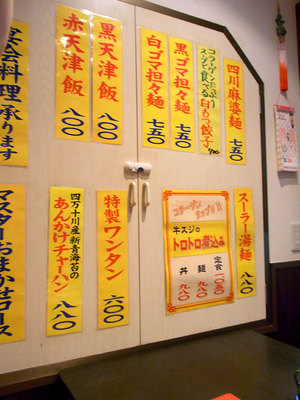 四川麻婆麺
七五〇
コラーゲンたっぷり
スープで食べる白もつ餃子
黒ゴマ担々麺
七五〇
白ゴマ担々麺
七五〇
黒天津飯
八〇〇
赤天津飯
八〇〇
宴会料理承ります
スーラー湯麺
八八〇
コラーゲン
タップリ!!
牛スジの
トロトロ煮込み
定食 一〇五〇
麺 九八〇
丼 九八〇
特製ワンタン
六〇〇
四万十川産新青海苔の
あんかけチャーハン
八八〇
マスターおまかせコース